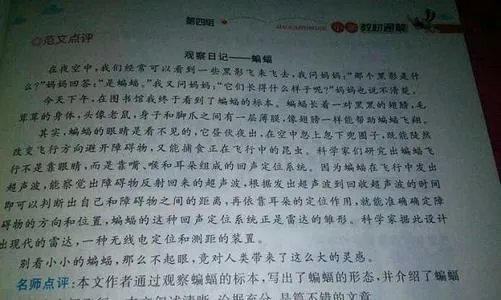 第四组
小学教材通解
◎范文点评
观察日记——蝙蝠
在夜空中,我们经常可以看到一些黑影飞来飞去,我问妈妈:“那个黑影是什
么?”妈妈回答:“是蝙蝠。”我又问妈妈:“它们长得什么样子呢?”妈妈也说不清楚。
今天下午,在图书馆我终于看到了蝙蝠的标本。蝙蝠长着一对黑黑的翅膀,毛
茸茸的身体,头像老鼠,身子和脚爪之间有一层薄膜,像翅膀一样能帮助蝙蝠飞翔。
其实,蝙蝠的眼睛是看不见的,它昼伏夜出,在空中忽上忽下兜圈子,既能陡然
改变飞行方向避开障碍物,又能捕食正在飞行中的昆虫。科学家们研究出蝙蝠飞
行不是靠眼睛,而是靠嘴、喉和耳朵组成的回声定位系统。因为蝙蝠在飞行中发出
超声波,能察觉出障碍物反射回来的超声波,根据发出超声波到回收超声波的时间
即可以判断出自己和障碍物之间的距离,再依靠耳朵的定位作用,就能准确确定障
碍物的方向和位置,蝙蝠的这种回声定位系统正是雷达的雏形。科学家据此设计
出现代的雷达,一种无线电定位和测距的装置。
别看小小的蝙蝠,那么不起眼,竟对人类带来了这么大的灵感。
名师点评:本文作者通过观察蝙蝠的标本,写出了蝙蝠的形态,并介绍了蝙蝠
文叙述清晰,论据充分,是篇不错的文章